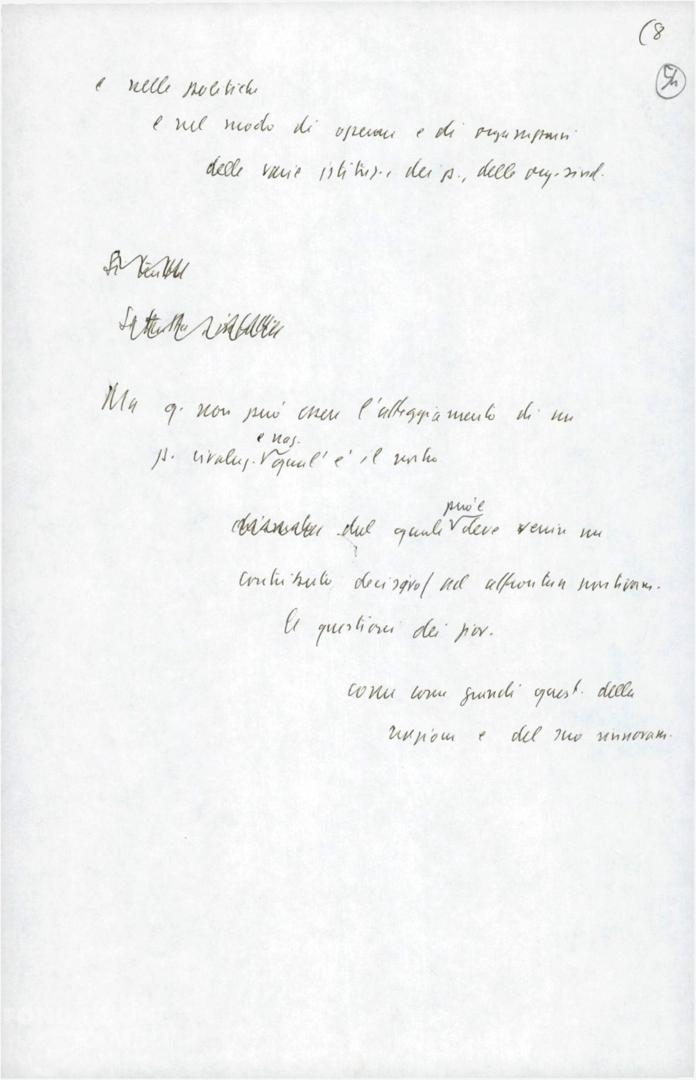 (8
5/2
e nelle politiche
e nel modo di operare e di organizzarsi
delle varie istituz., dei p., delle org. sind.
Ma q. non può essere l'atteggiamento di un
e naz.
p. rivoluz. qual'è il nostro
può e
dal quale deve venire un
contributo decisivo ad affrontare positivam.
le questioni dei giov.
come grandi quest. della
nazione e del suo rinnovam.